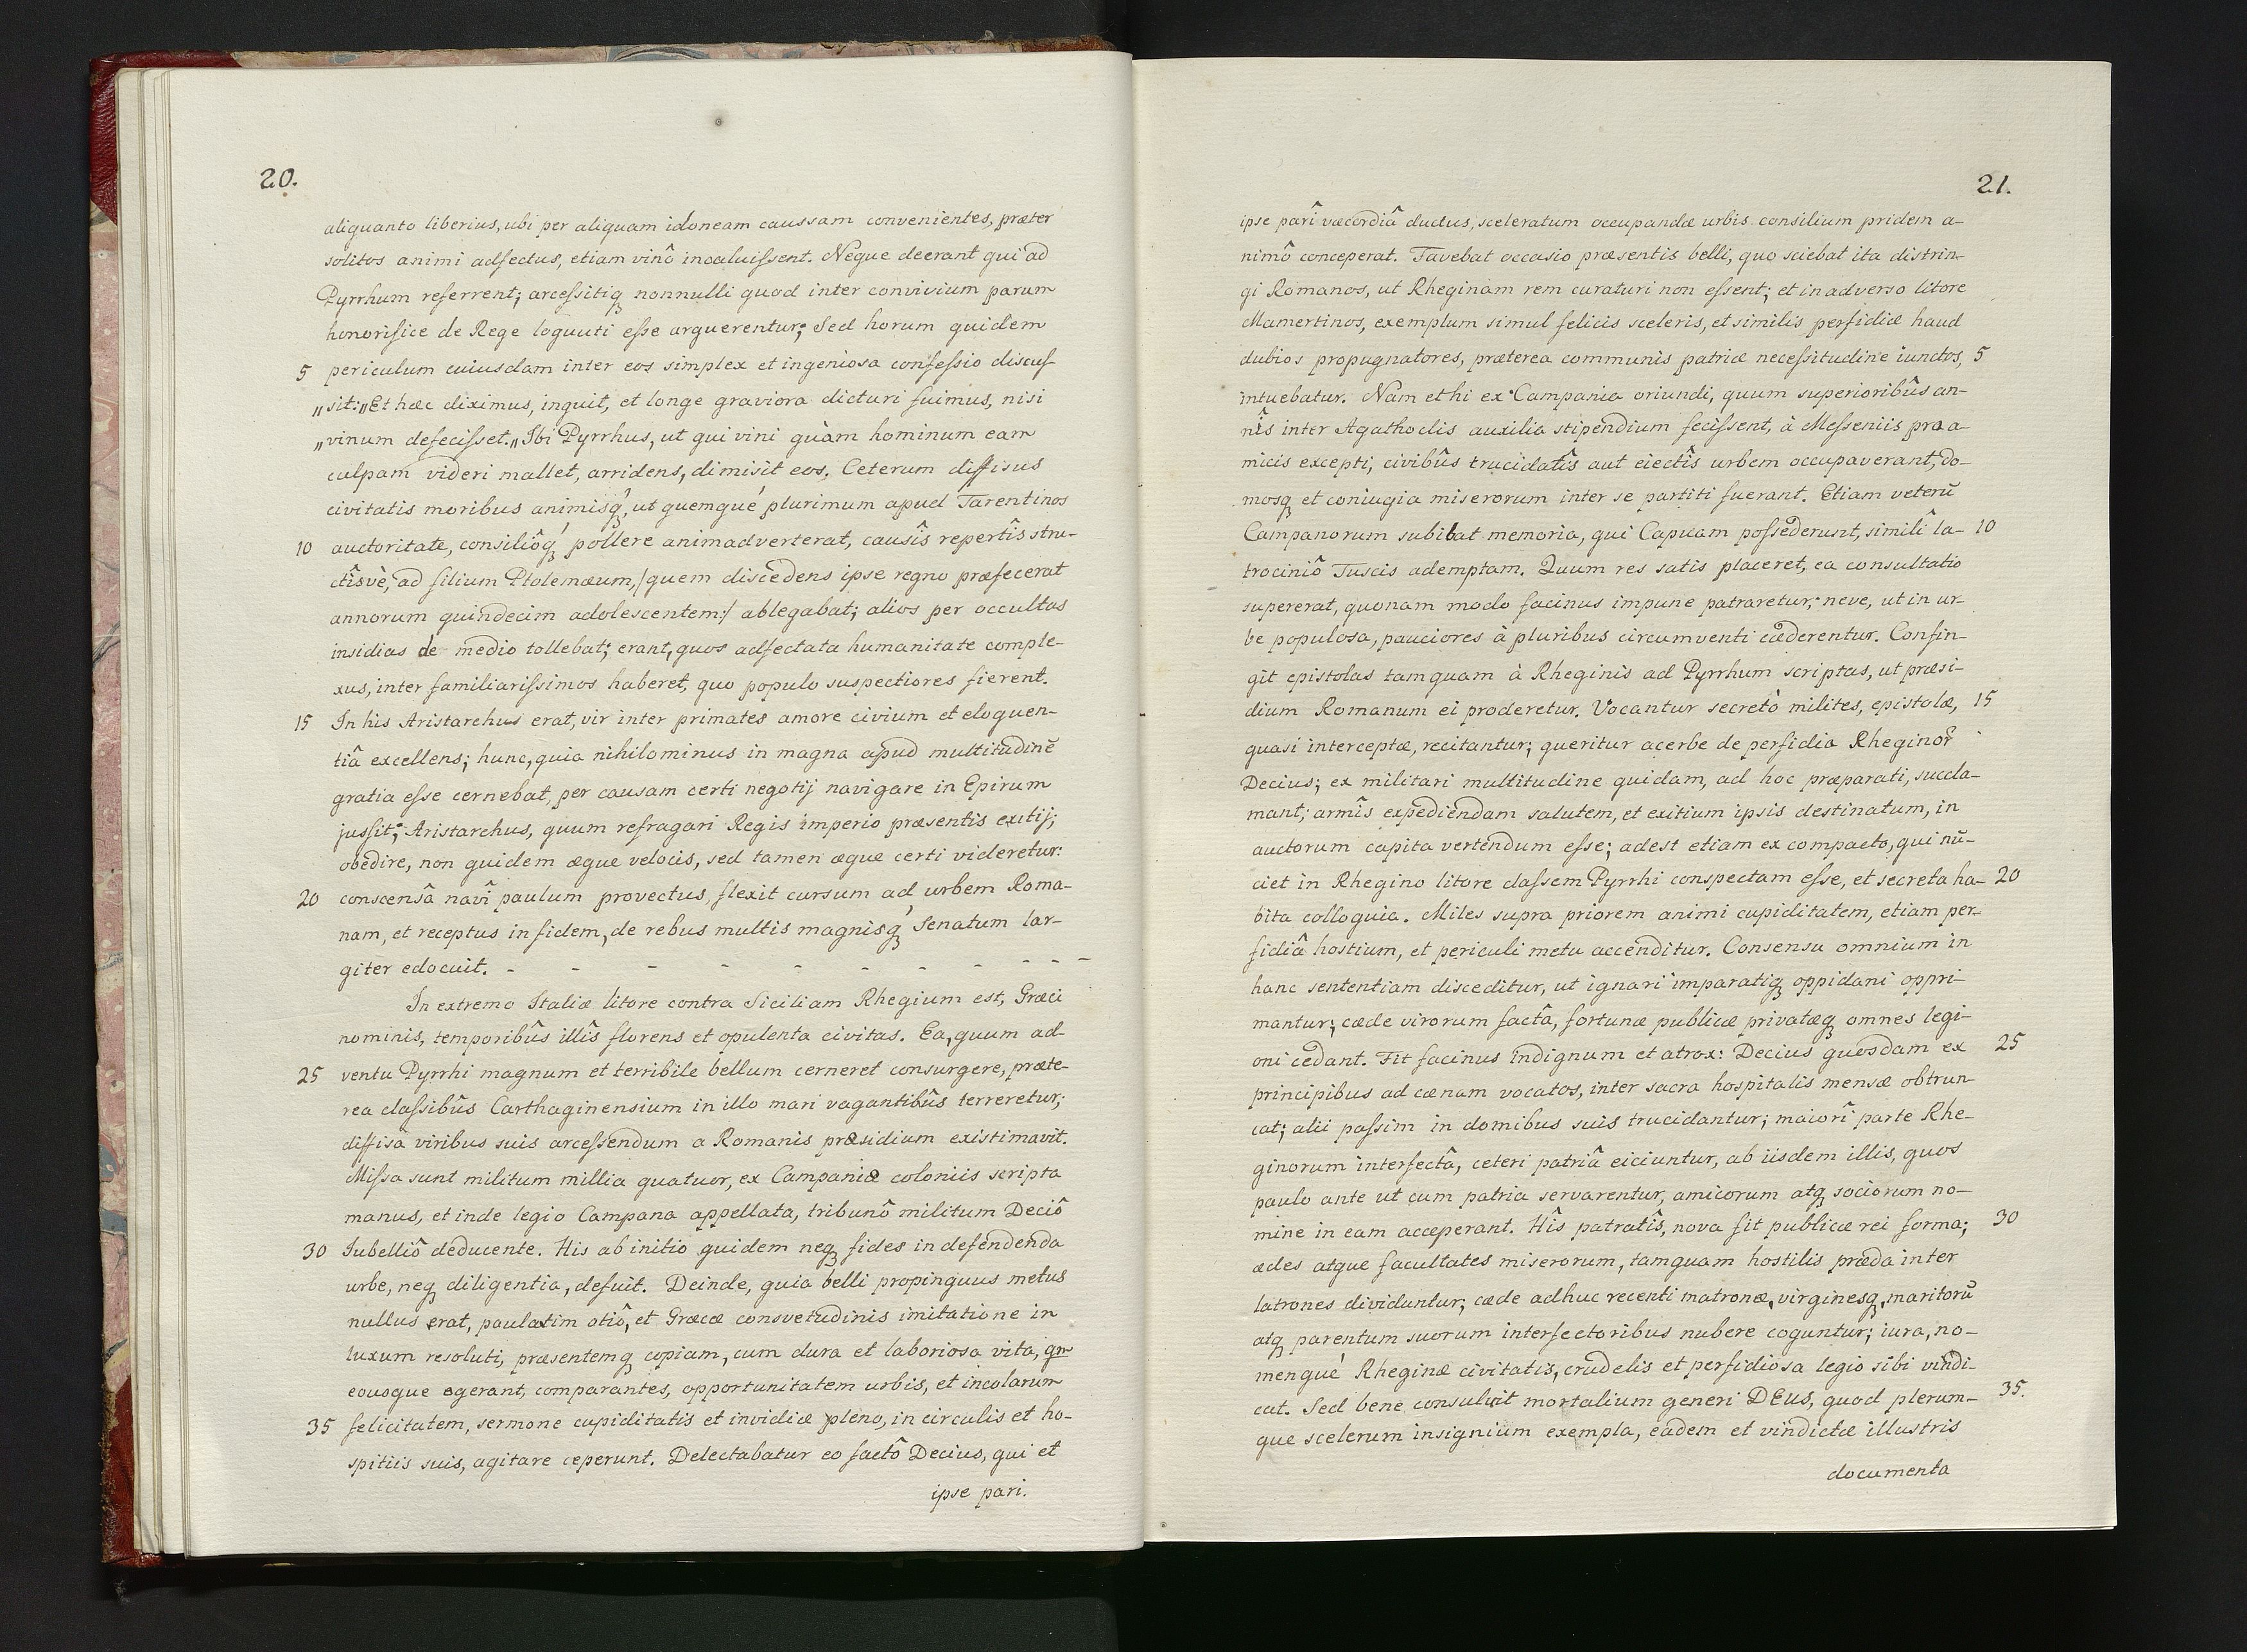 20.
aliquanto liberius, ubi per aliquam idoneam caussam convenientes, præter
solitos animi adfectus, etiam vinô incaluissent. Neque deerant qui ad
Pyrrhum referrent; arcessitiq nonnulli quod inter convivium parum
honorifice de Rege loquuti esse arguerentur; Sed horum quidem
5 periculum cuiusdam inter eos simplex et ingeniosa confessio discus
„sit: „Et hæc diximus, inquit, et longe graviora dicturi fuimus, nisi
„vinum defecisset.„ Ibi Pyrrhus, ut qui vini quàm hominum eam
culpam videri mallet, arridens, dimisit eos. Ceterum diffisus
civitatis moribus animisq́, ut quemqué plurimum apud Tarentinos
10 auctoritate, consiliôq́ pollere animadverterat, causîs repertîs stru-
ctîsvè, ad filium Ptolemæum, /quem discedens ipse regno præfecerat
annorum quindecim adolescentem:/ ablegabat; alios per occultas
insidias de medio tollebat; erant, quos adfectata humanitate comple-
xus, inter familiarissimos haberet, quo populo suspectiores fierent.
15 In his Aristarchus erat, vir inter primates amore civium et eloquen-
tiâ excellens; hunc, quia nihilominus in magna apud multitudinē
gratia esse cernebat, per causam certi negotij navigare in Epirum
jussit; Aristarchus, quum refragari Regis imperio præsentis exitij;
obedire, non quidem æque velocis, sed tamen æque certi videretur:
20 conscensâ navî paulum provectus, flexit cursum ad urbem Roma-
nam, et receptus in fidem, de rebus multis magnisq́ Senatum lar-
giter edocuit. - - - - - - - - - - -
In extremo Italiæ litore contra Siciliam Rhegium est, Græci
nominis, temporibûs illîs florens et opulenta civitas. Ea, quum ad-
25 ventu Pyrrhi magnum et terribile bellum cerneret consurgere, præte-
rea classibûs Carthaginensium in illo mari vagantibûs terreretur;
diffisa viribus suis arcessendum a Romanis præsidium existimavit.
Missa sunt militum millia quatuor, ex Campaniæ coloniis scripta
manus, et inde legio Campana appellata, tribunô militum Deciô
30 Iubelliô deducente. His ab initio quidem neq fides in defendenda
urbe, neq diligentia, defuit. Deinde, quia belli propinquus metus
nullus erat, paulatim otiô, et Græcæ consvetudinis imitatione in
luxum resoluti, præsentemq copiam, cum dura et laboriosa vita, qm
eousque egerant, comparantes, opportunitatem urbis, et incolarum
35 felicitatem, sermone cupiditatis et invidiæ pleno, in circulis et ho-
spitiis suis, agitare ceperunt. Delectabatur eo factô Decius, qui et
ipse pari.
21.
ipse parî væcordiâ ductus, sceleratum occupandæ urbis consilium pridem a-
nimô conceperat. Favebat occasio præsentis belli, quo sciebat ita distrin-
gi Romanos, ut Rheginam rem curaturi non essent; et in adverso litore
Mamertinos, exemplum simul felicis sceleris, et similis perfidiæ haud
dubios propugnatores, præterea communis patriæ necessitudine iunctos, 5
intuebatur. Nam et hi ex Campania oriundi, quum superioribûs an-
nîs inter Agathoclis auxilia stipendium fecissent, à Messeniis pro a-
micis excepti, civibûs trucidatîs aut eiectîs urbem occupaverant, do-
mosq et coniugia miserorum inter se partiti fuerant. Etiam veterū
Campanorum subibat memoria, qui Capuam possederunt, similî la- 10
trociniô Tuscis ademptam. Quum res satis placeret, ea consultatio
supererat, quonam modo facinus impune patraretur; neve, ut in ur-
be populosa, pauciores à pluribus circumventi cæderentur. Confin-
git epistolas tamquam à Rheginis ad Pyrrhum scriptas, ut præsi-
dium Romanum ei proderetur. Vocantur secretò milites, epistolæ, 15
quasi interceptæ, recitantur; queritur acerbe de perfidia Rheginor̄
Decius; ex militari multitudine quidam, ad hoc præparati, succla-
mant; armîs expediendam salutem, et exitium ipsis destinatum, in
auctorum capita vertendum esse; adest etiam ex compacto, qui nū-
ciet in Rhegino litore classem Pyrrhi conspectam esse, et secreta ha- 20
bita colloquia. Miles supra priorem animi cupiditatem, etiam per-
fidiâ hostium, et periculi metu accenditur. Consensu omnium in
hanc sententiam disceditur, ut ignari imparatiq oppidani oppri-
mantur; cæde virorum factâ, fortunæ publicæ privatæq omnes legi-
oni cedant. Fit facinus indignum et atrox: Decius quosdam ex 25
principibus ad cænam vocatos, inter sacra hospitalis mensæ obtrun-
cat; alii passim in domibus suis trucidantur; maiorî parte Rhe-
ginorum interfectâ, ceteri patriâ eiciuntur, ab iisdem illis, quos
paulo ante ut cum patria servarentur, amicorum atq sociorum no-
mine in eam acceperant. Hîs patratîs, nova fit publicæ rei forma; 30
ædes atque facultates miserorum, tamquam hostilis præda inter
latrones dividuntur; cæde adhuc recenti matronæ, virginesq, maritorū
atq parentum suorum interfectoribus nubere coguntur; iura, no-
menqué Rheginæ civitatis, crudelis et perfidiosa legio sibi vindi-
cat. Sed bene consuluit mortalium generi DEus, quod plerum- 35.
que scelerum insignium exempla, eadem et vindictæ illustris
documenta